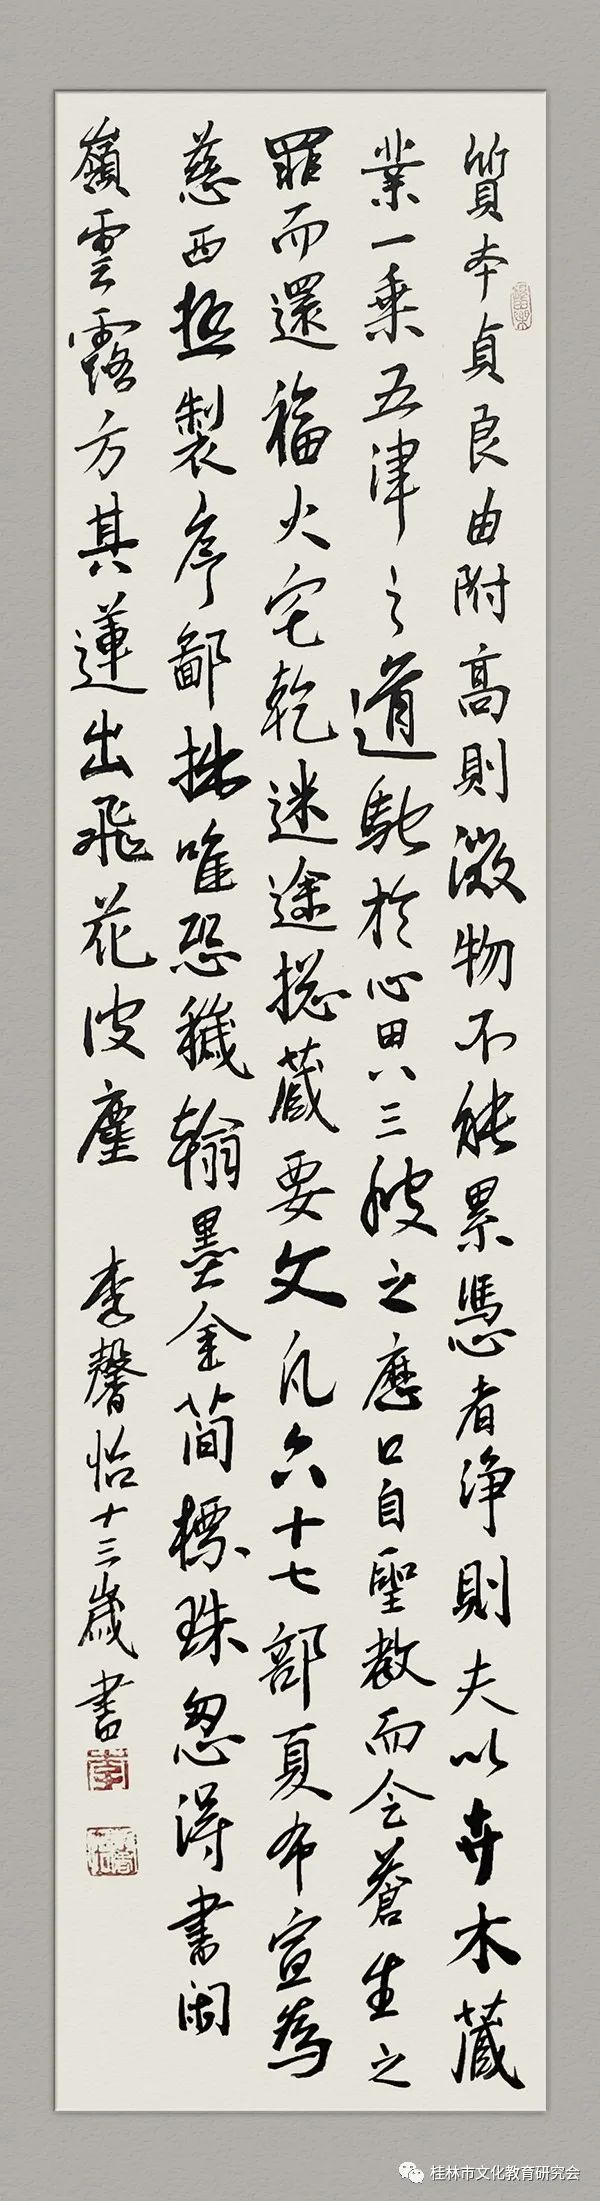 質本貞良由附高則微物不能累憑者淨則夫以卉木藏
業一乘五津之道馳於心田八三之應口自聖教而合蒼生之
罪而還福火宅乾迷途揔藏要文凡六十七部夏布宣為
慈西極製序鄙拙唯恐穢翰墨金簡標珠忽得書
嶺雲露方其蓮出飛花塵 李馨怡十三歲書
桂林市文化教育研究会